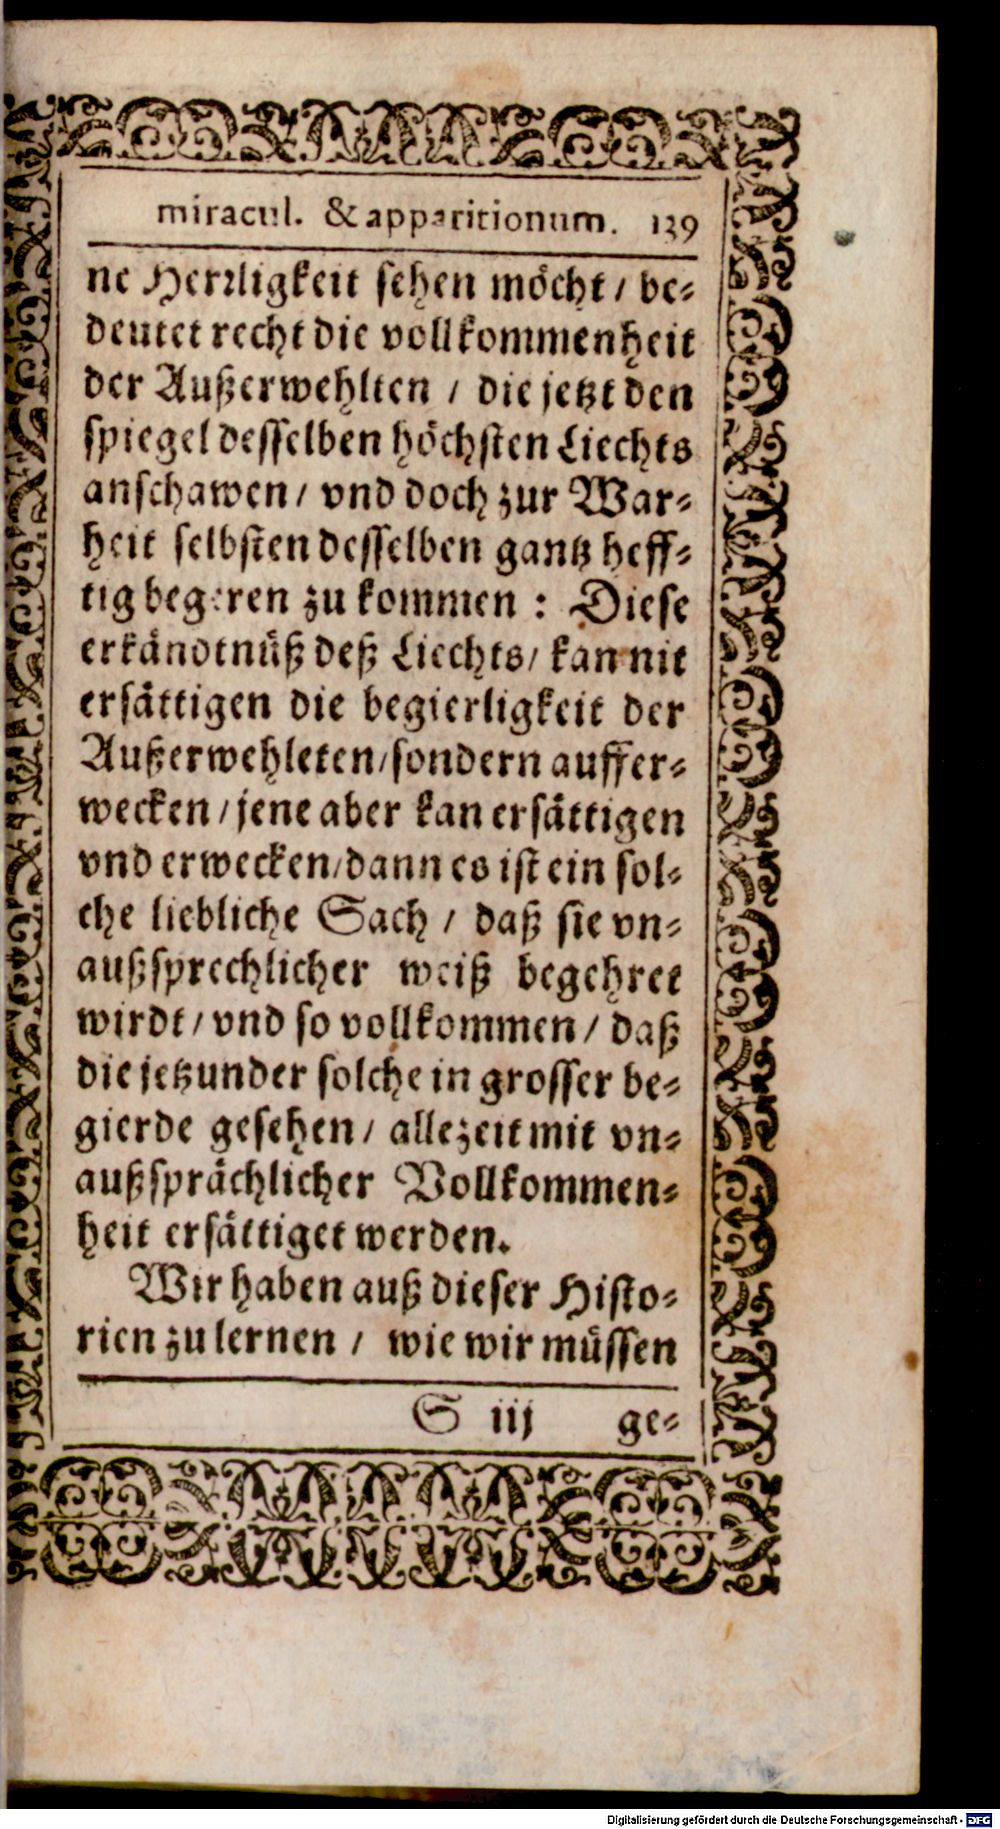 miracul. & apparitionum. 139
ne Herrligkeit sehen möcht / be-
deutet recht die vollkommenheit
der Außerwehlten / die jetzt den
spiegel desselben höchsten Liechts
anschawen / vnd doch zur War-
heit selbsten desselben gantz heff-
tig begeren zu kommen : Diese
erkändtnüß deß Liechts / kan nit
ersättigen die begierligkeit der
Außerwehleten / sondern auffer-
wecken / jene aber kan ersättigen
vnd erwecken / dann es ist ein sol-
che liebliche Sach / daß sie vn-
außsprechlicher weiß begehret
wirdt / vnd so vollkommen / daß
die jetzunder solche in grosser be-
gierde gesehen / allezeit mit vn-
außsprächlicher Vollkommen-
heit ersättiget werden.
Wir haben auß dieser Histo-
rien zu lernen / wie wir müssen
S iij ge-
Digitalisierung gefördert durch die Deutsche Forschungsgemeinschaft - DFG